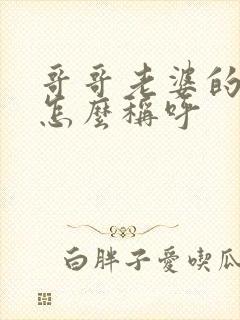 哥哥老婆的
怎麼稱呼
白胖子愛喫瓜